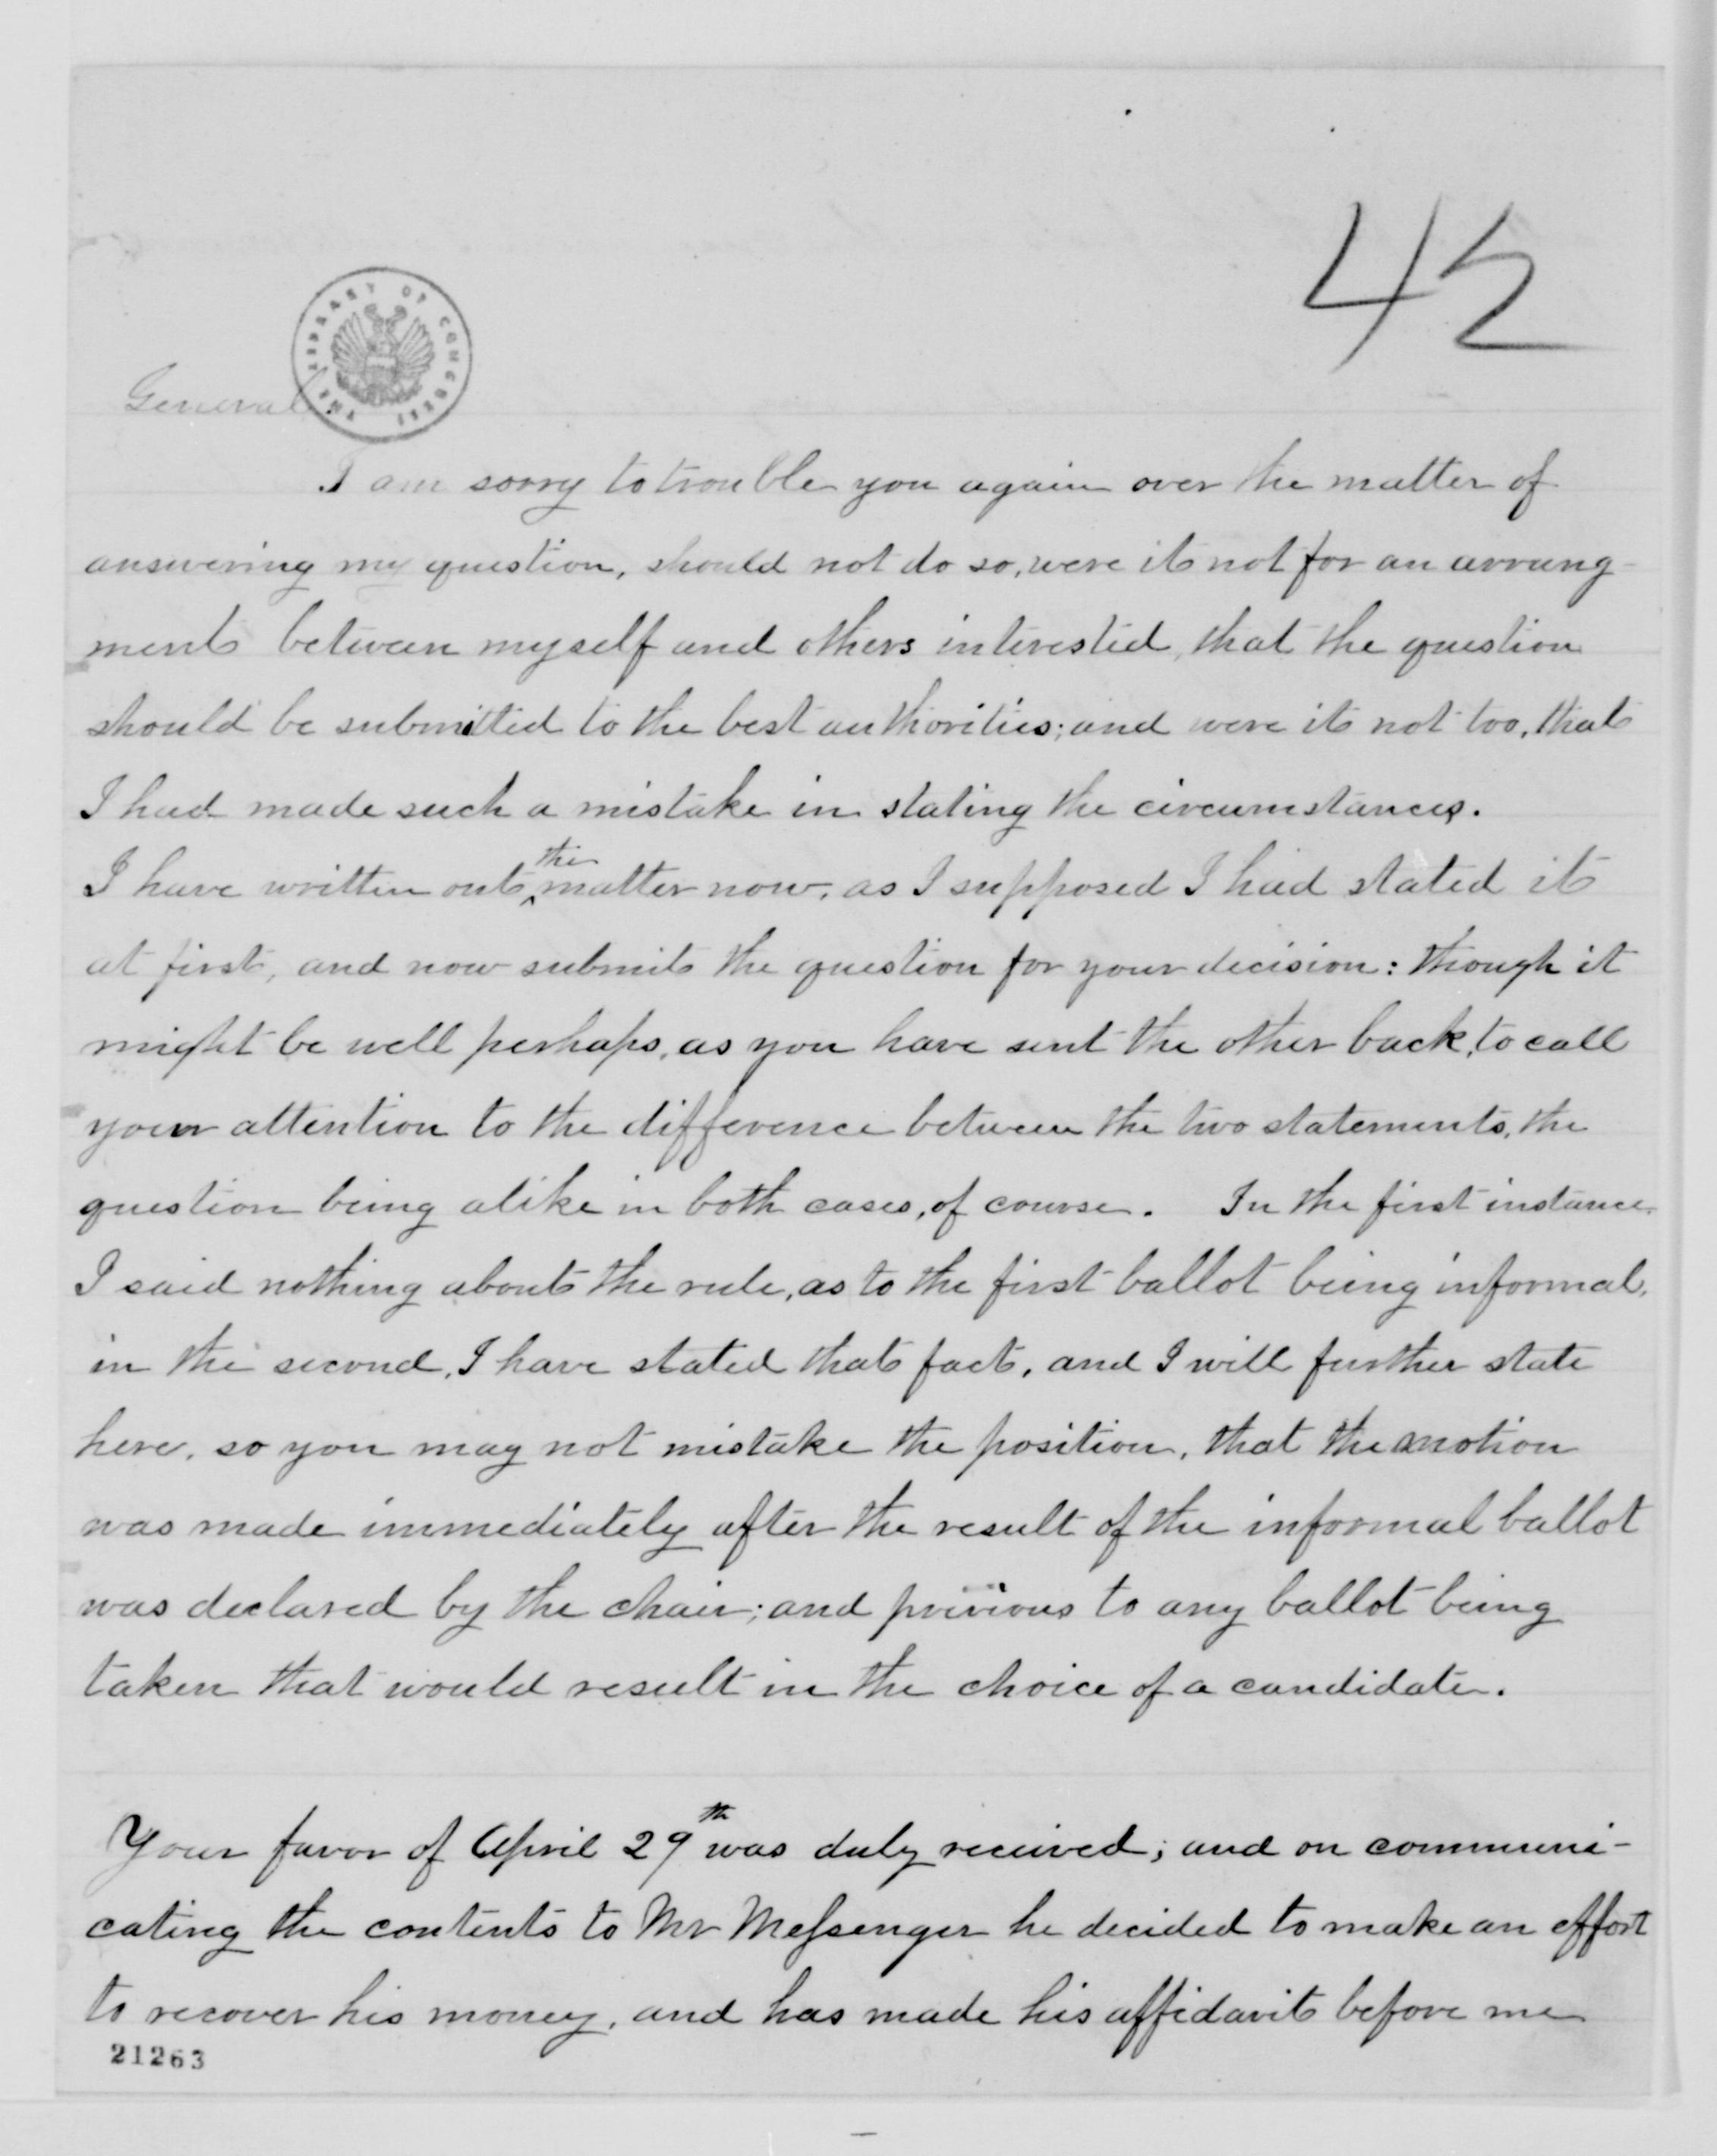 42
THE LIBRARY OF CONGRESS
General.
I am sorry to trouble you again over the matter of
answering my question, should not do so, were it not for an arrang-
ment between myself and others interested, that the question
should be submitted to the best authorities; and were it not too, that
I had made such a mistake in stating the circumstances.
I have written out the matter now, as I supposed I had stated it
at first, and now submit the question for your decision: though it
might be well perhaps, as you have sent the other back, to call
your attention to the difference between the two statements, the
question being alike in both cases, of course. In the first instance
I said nothing about the rule, as to the first ballot being informal,
in the second, I have stated that fact, and I will further state
here, so you may not mistake the position, that the motion
was made immediately after the result of the informal ballot
was declared by the chair; and previous to any ballot being
taken that would result in the choice of a candidate.
Your favor of April 29th was duly received; and on communi-
cating the contents to Mr Messenger he decided to make an effort
to recover his money, and has made his affidavit before me
21263